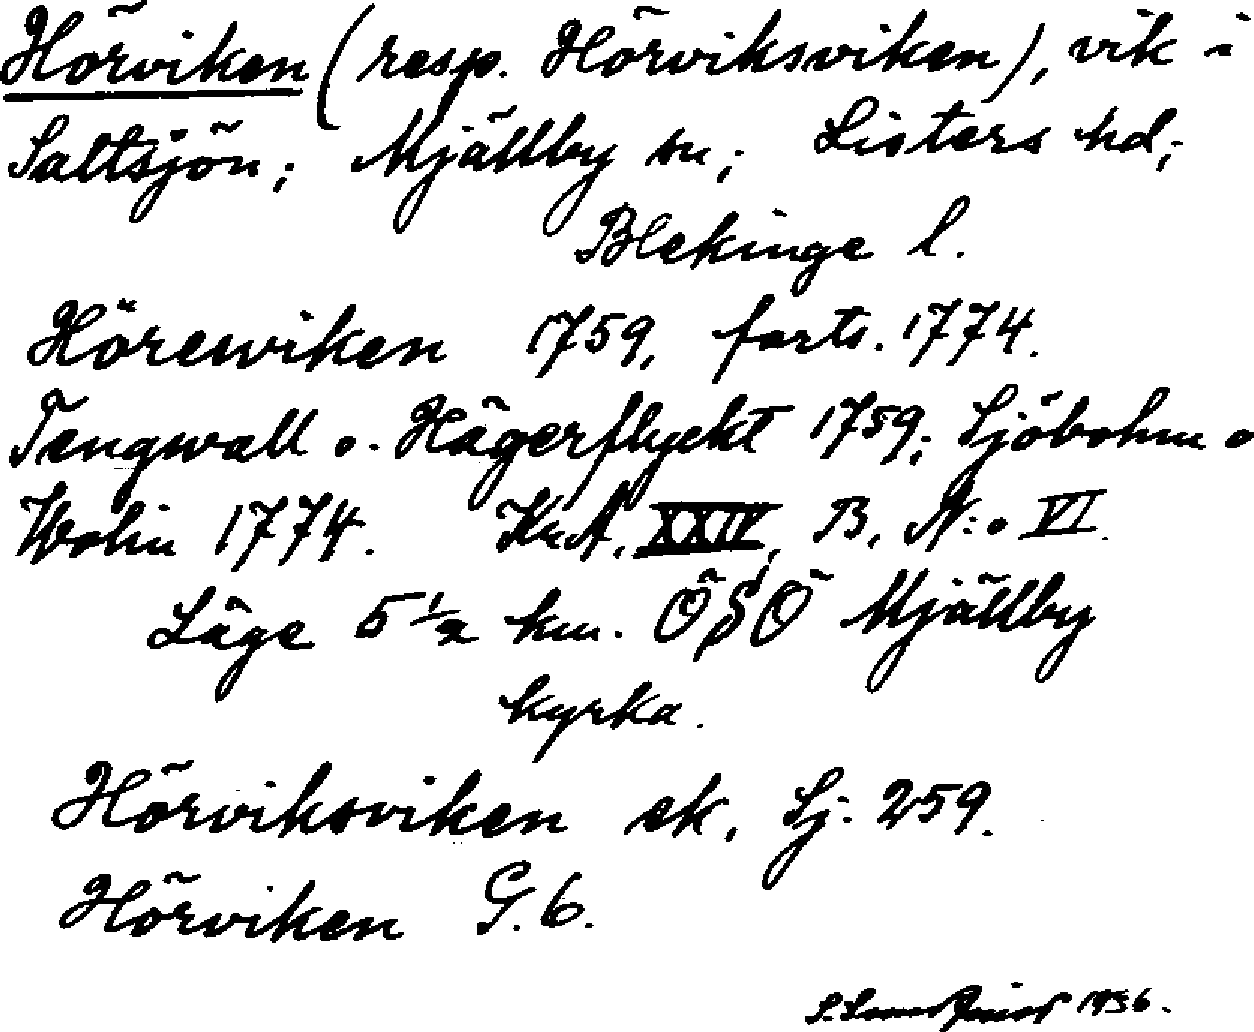 Hörviken (resp. Hörviksviken), vik i
Saltsjön; Mjällby sn; Listers hd;
Blekinge l.
Hörewiken 1759, forts. 1774.
Tengwall o. Hägerflyckt 1759; Sjöbohm o
Wolin 1774. KrA, XXIV, B, N:o VI.
Läge 5 1/2 km. ÖSÖ Mjällby
kyrka.
Hörviksviken ek, Sj. 259.
Hörviken G. 6.
1956.